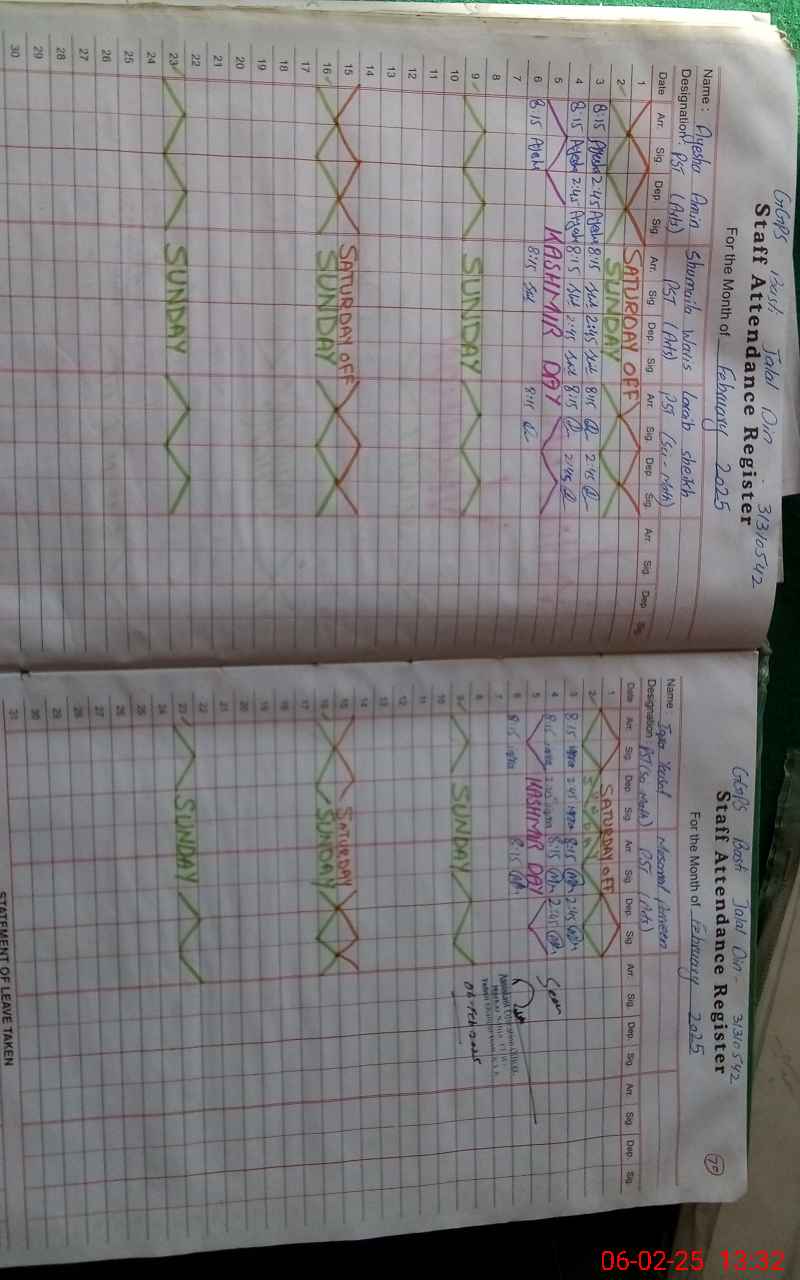 GGPS Basti Jalal Din - 31310542
Staff Attendance Register
For the Month of February 2025
Name : Ayesha Amin Shumaila Waris Laraib Sheikh
Designation: PST (Arts) PST (Arts) PST (Sci-Math)
Date Arr. Sig. Dep. Sig. Arr. Sig. Dep. Sig. Arr. Sig. Dep. Sig. Arr. Sig. Dep. Sig.
1 SATURDAY OFF
2 SUNDAY
3 8:15 Ayesha 2:45 Ayesha 8:15 2:45 8:15 2:45
4 8:15 Ayesha 2:45 Ayesha 8:15 2:45 8:15 2:45
5 KASHMIR DAY
6 8:15 Ayesha 8:15 8:15
7
8
9 SUNDAY
10
11
12
13
14
15 SATURDAY OFF
16 SUNDAY
17
18
19
20
21
22
23 SUNDAY
24
25
26
27
28
29
30
GGPS Basti Jalal Din - 31310542
Staff Attendance Register
70
For the Month of February 2025
Name Iqra Yousaf Parveen
Designation PST (Sci Math) PST (Arts)
Date Arr. Sig. Dep. Sig. Arr. Sig. Dep. Sig. Arr. Sig. Dep. Sig. Arr. Sig. Dep. Sig.
1 SATURDAY OFF
2 SUNDAY
3 8:15 iqra 2:45 iqra 8:15 2:45
4 8:15 iqra 2:45 iqra 8:15 2:45 Seen
5 KASHMIR DAY
6 8:15 iqra 8:15
7
8
06-Feb-2025
9 SUNDAY
10
11
12
13
14
15 SATURDAY
16 SUNDAY
17
18
19
20
21
22
23 SUNDAY
24
25
26
27
28
29
30
31
STATEMENT OF LEAVE TAKEN
06-02-25 13:32